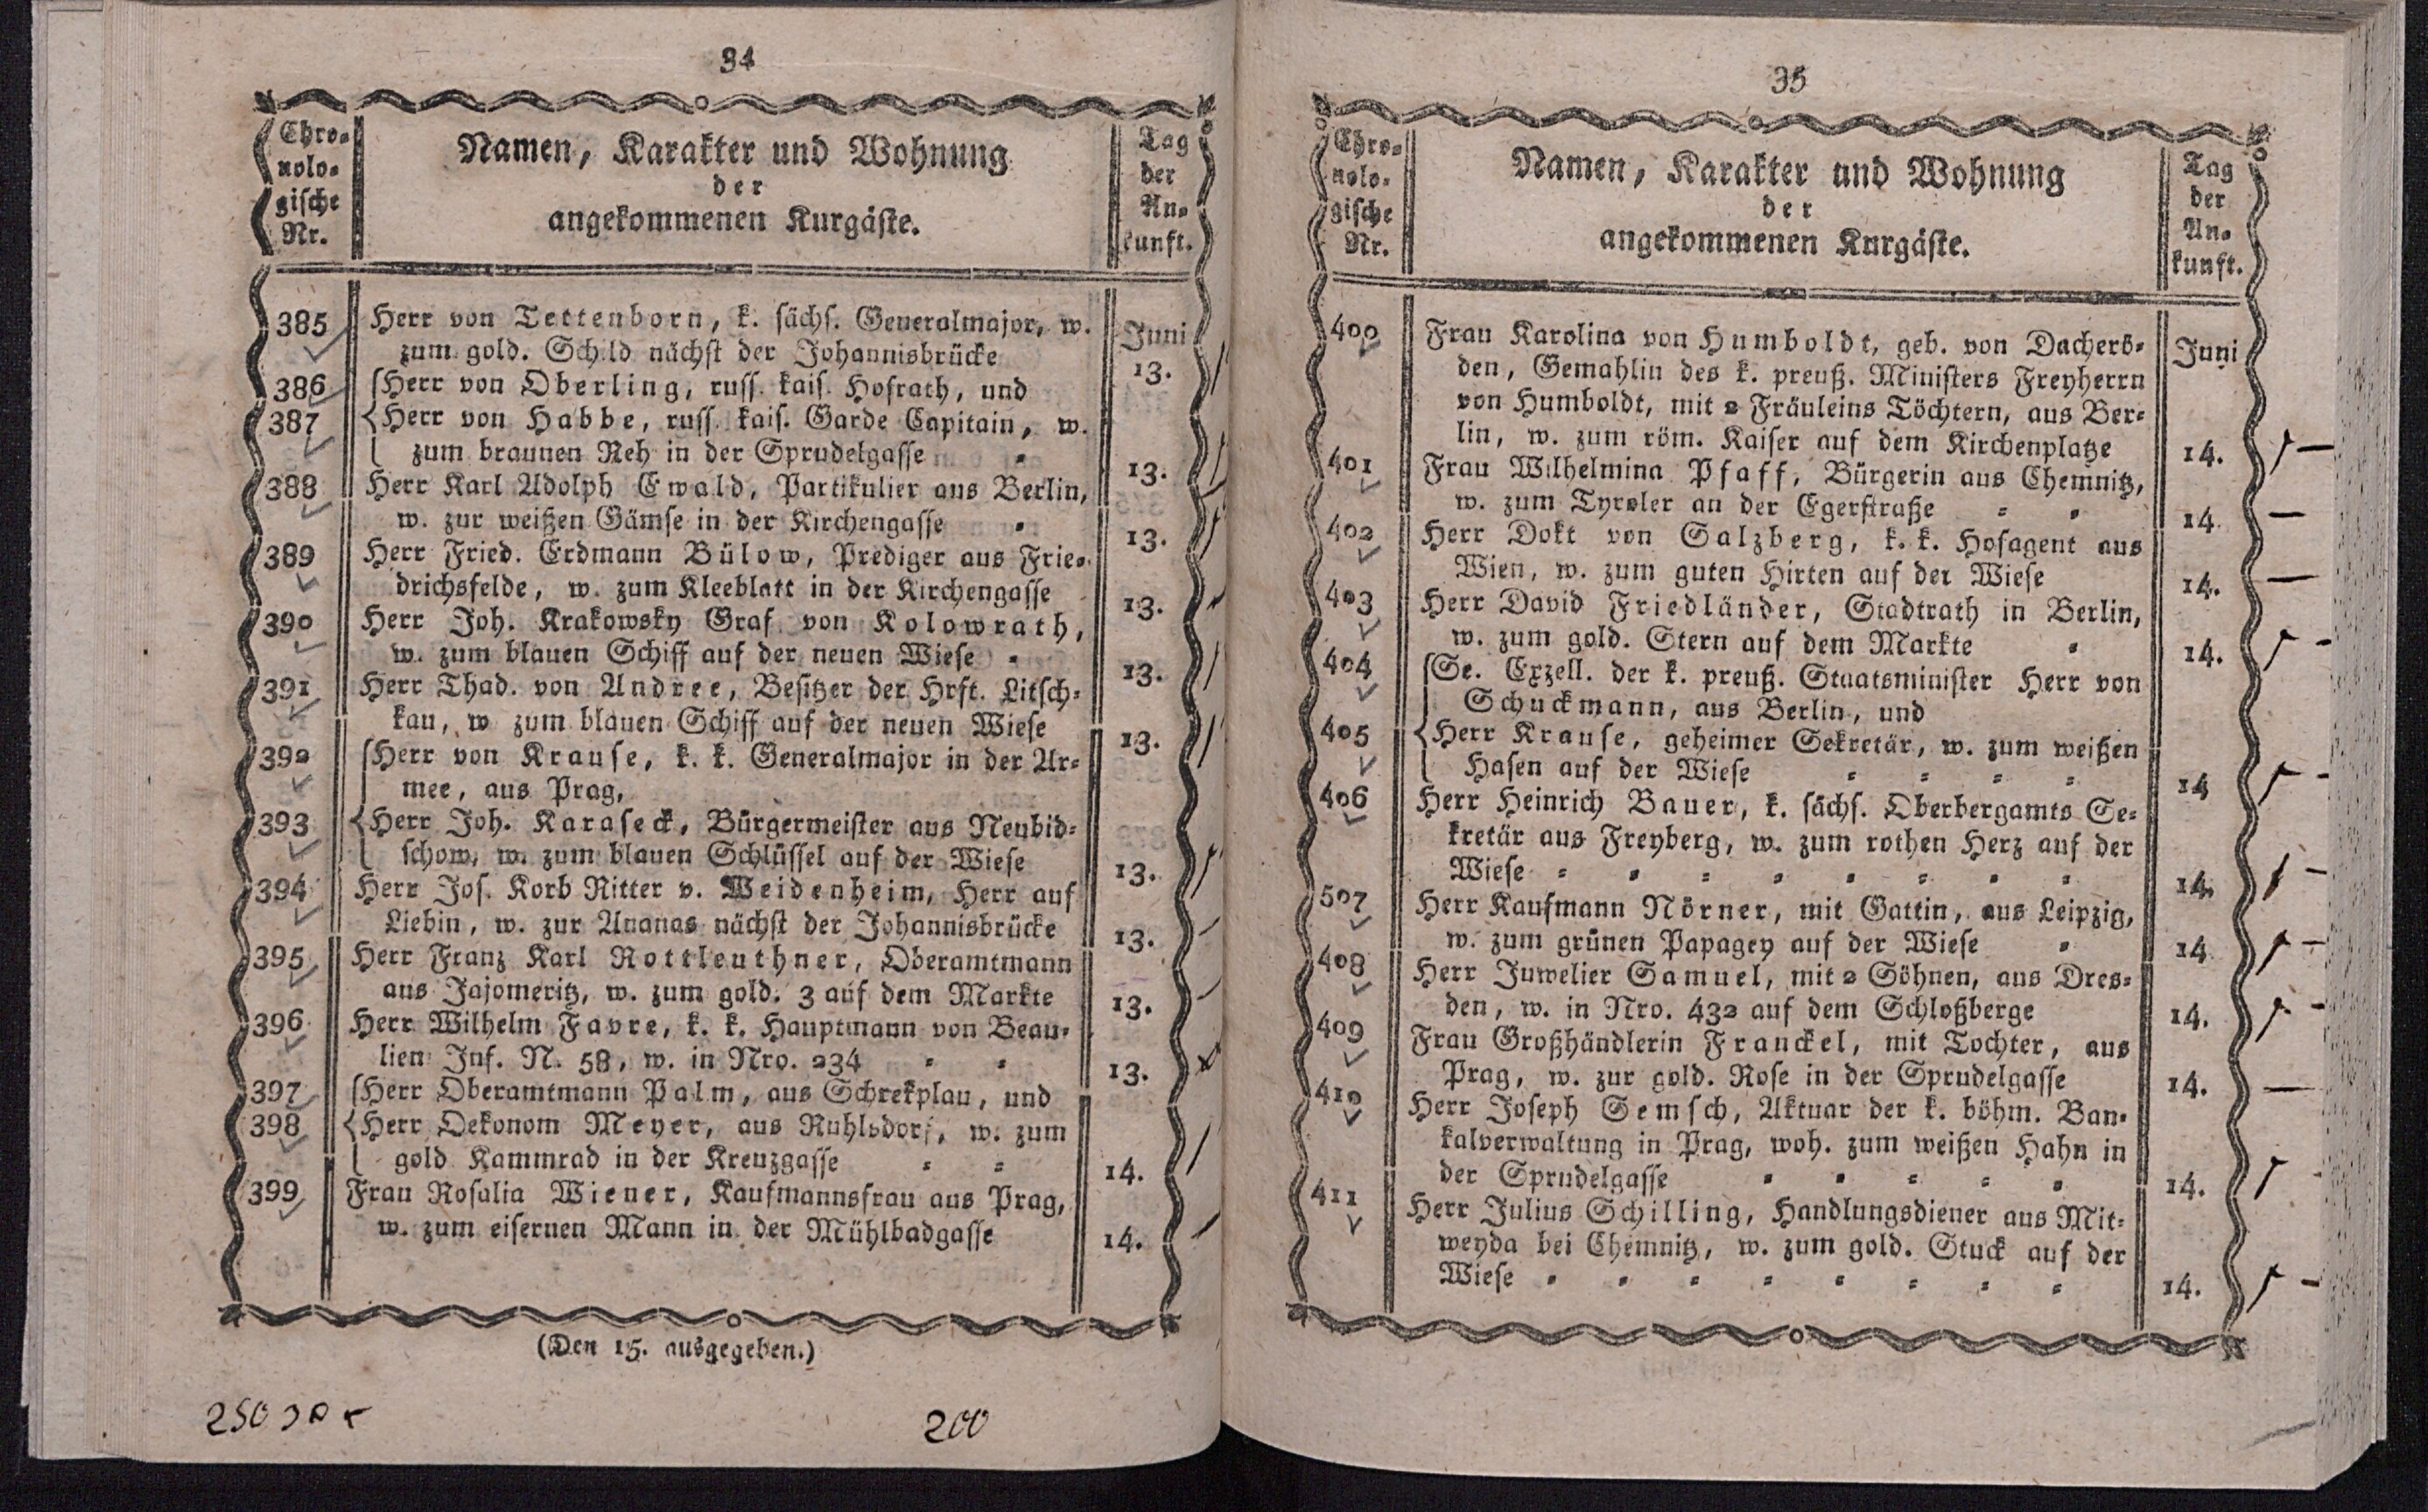 34
Chro-
nolo-
gische
Nr.
Namen, Karakter und Wohnung
der
angekommenen Kurgäste.
Tag
der
An-
kunft.
385 Herr von Tettenborn, k. sächs. Generalmajor, w. Juni
zum gold. Schild nächst der Johannisbrücke 13.
386 Herr von Oberling, russ. kais. Hofrath, und
387 Herr von Habbe, russ. kais. Garde Capitain, w.
zum braunen Reh in der Sprudelgasse 13.
388 Herr Karl Adolph Ewald, Partikulier aus Berlin,
w. zur weißen Gämse in der Kirchengasse 13.
389 Herr Fried. Erdmann Bülow, Prediger aus Frie-
drichsfelde, w. zum Kleeblatt in der Kirchengasse 13.
390 Herr Joh. Krakowsky Graf von Kolowrath,
w. zum blauen Schiff auf der neuen Wiese 13.
391 Herr Thad. von Andree, Besitzer der Hrft. Litsch-
kau, w zum blauen Schiff auf der neuen Wiese 13.
392 Herr von Krause, k. k. Generalmajor in der Ar-
mee, aus Prag,
393 Herr Joh. Karaseck, Bürgermeister aus Neubid-
schow, w. zum blauen Schlüssel auf der Wiese 13.
394 Herr Jos. Korb Ritter v. Weidenheim, Herr auf
Liebin, w. zur Ananas nächst der Johannisbrücke 13.
395 Herr Franz Karl Rottleuthner, Oberamtmann
aus Jajomeritz, w. zum gold. 3 auf dem Markte 13.
396 Herr Wilhelm Favre, k. k. Hauptmann von Beau-
lien Inf. N. 58, w. in Nro. 234 13.
397 Herr Oberamtmann Palm, aus Schrekplau, und
398 Herr Oekonom Meyer, aus Ruhlsdorf, w. zum
gold Kammrad in der Kreuzgasse 14.
399 Frau Rosalia Wiener, Kaufmannsfrau aus Prag,
w. zum eisernen Mann in der Mühlbadgasse 14.
(Den 15. ausgegeben.)
200
35
Chro-
nolo-
gische
Nr.
Namen, Karakter und Wohnung
der
angekommenen Kurgäste.
Tag
der
An-
kunft.
400 Frau Karolina von Humboldt, geb. von Dacherö- Juni
den, Gemahlin des k. preuß. Ministers Freyherrn
von Humboldt, mit 2 Fräuleins Töchtern, aus Ber-
lin, w. zum röm. Kaiser auf dem Kirchenplatze 14.
401 Frau Wilhelmina Pfaff, Bürgerin aus Chemnitz,
w. zum Tyroler an der Egerstraße 14.
402 Herr Dokt von Salzberg, k. k. Hofagent aus
Wien, w. zum guten Hirten auf der Wiese 14.
403 Herr David Friedländer, Stadtrath in Berlin,
w. zum gold. Stern auf dem Markte 14.
404 Se. Exzell. der k. preuß. Staatsminister Herr von
Schuckmann, aus Berlin, und
405 Herr Krause, geheimer Sekretär, w. zum weißen
Hasen auf der Wiese 14
406 Herr Heinrich Bauer, k. sächs. Oberbergamts Se-
kretär aus Freyberg, w. zum rothen Herz auf der
Wiese 14.
507 Herr Kaufmann Nörner, mit Gattin, aus Leipzig,
w. zum grünen Papagey auf der Wiese 14
408 Herr Juwelier Samuel, mit 2 Söhnen, aus Dres-
den, w. in Nro. 432 auf dem Schloßberge 14.
409 Frau Großhändlerin Franckel, mit Tochter, aus
Prag, w. zur gold. Rose in der Sprudelgasse 14.
410 Herr Joseph Semsch, Aktuar der k. böhm. Ban-
kalverwaltung in Prag, woh. zum weißen Hahn in
der Sprudelgasse 14.
411 Herr Julius Schilling, Handlungsdiener aus Mit-
weyda bei Chemnitz, w. zum gold. Stuck auf der
Wiese 14.